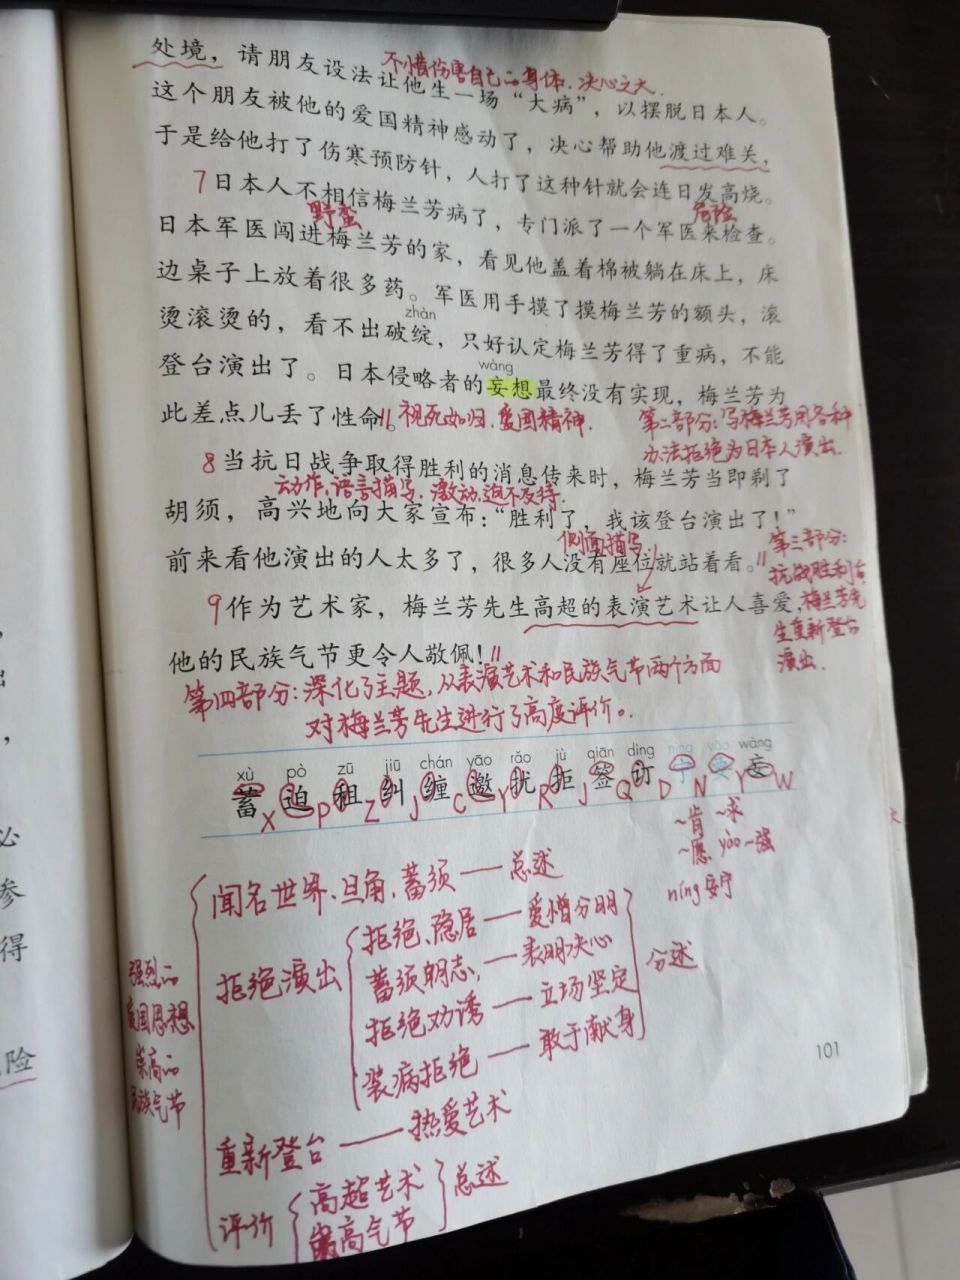 处境，请朋友设法让他生一场“大病”，以摆脱日本人。
不惜伤害自己的身体，决心之大.
这个朋友被他的爱国精神感动了，决心帮助他渡过难关，
于是给他打了伤寒预防针，人打了这种针就会连日发高烧。
7日本人不相信梅兰芳病了，专门派了一个军医来检查。
野蛮
危险
日本军医闯进梅兰芳的家，看见他盖着棉被躺在床上，床
边桌子上放着很多药。军医用手摸了摸梅兰芳的额头，滚
zhàn
烫滚烫的，看不出破绽，只好认定梅兰芳得了重病，不能
wàng
登台演出了。日本侵略者的妄想最终没有实现，梅兰芳为
此差点儿丢了性命。
视死如归、爱国精神.
第二部分：写梅兰芳用各种
办法拒绝为日本人演出.
8当抗日战争取得胜利的消息传来时，梅兰芳当即剃了
动作、语言描写，激动、迫不及待.
胡须，高兴地向大家宣布：“胜利了，我该登台演出了！”
侧面描写
前来看他演出的人太多了，很多人没有座位就站着看。
第三部分：
抗战胜利后
梅兰芳先
生重新登台
演出.
9作为艺术家，梅兰芳先生高超的表演艺术让人喜爱，
他的民族气节更令人敬佩！
第四部分：深化了主题，从表演艺术和民族气节两个方面
对梅兰芳先生进行了高度评价。
xù pò zū jiū chán yāo rǎo jù qiān dìng nìng yào wàng
蓄迫租纠缠邀扰拒签订宁要妄
X P Z J C Y R J Q D N Y W
~肯 ~求
~愿 yāo ~强
níng 安宁
闻名世界、旦角、蓄须——总述
拒绝演出
拒绝、隐居——爱憎分明
蓄须明志，——表明决心
拒绝劝诱——立场坚定
装病拒绝——敢于献身
分述
强烈的
爱国思想
崇高的
民族气节
重新登台——热爱艺术
评价
高超艺术
崇高气节
总述
101
必
参
得
险